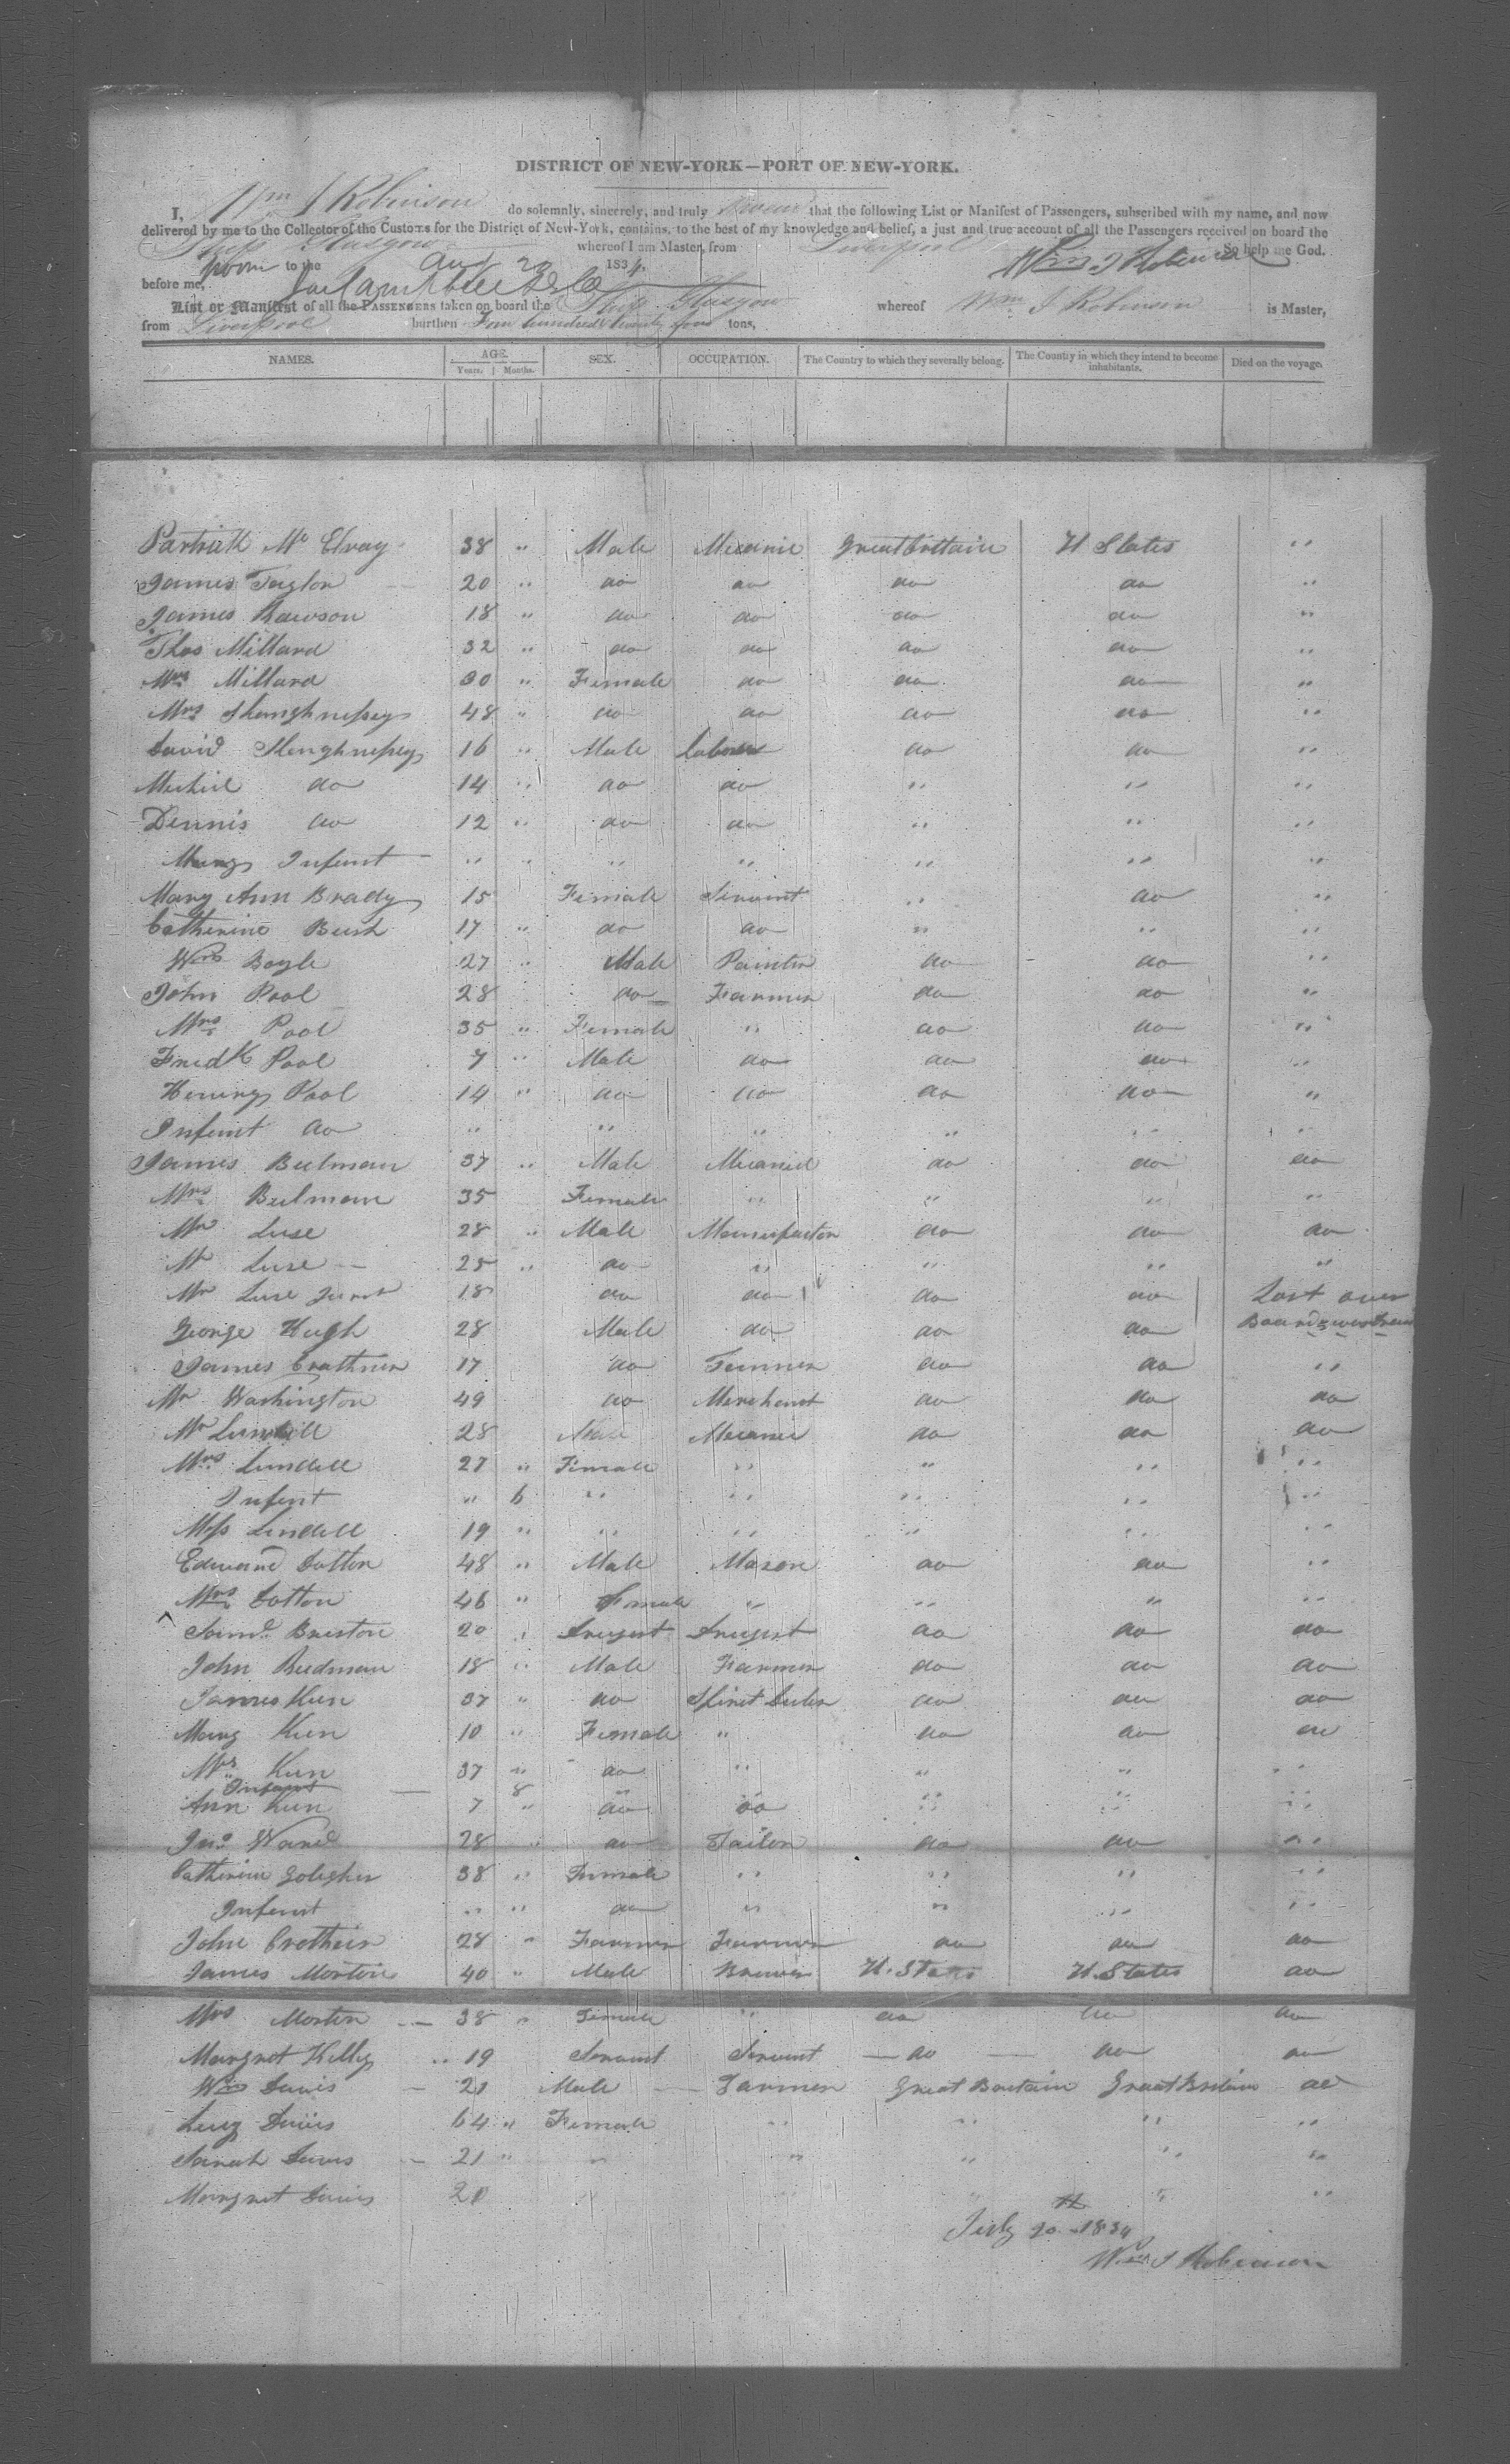 DISTRICT OF NEW-YORK—PORT OF NEW-YORK.
I, Wm J Robinson do solemnly, sincerely, and truly swear that the following List or Manifest of Passengers, subscribed with my name, and now
delivered by me to the Collector of the Customs for the District of New-York, contains, to the best of my knowledge and belief, a just and true account of all the Passengers received on board the
Ship Glasgow whereof I am Master, from Liverpool So help me God.
Sworn to the Aug 20 1834. Wm J Robinson
before me,
List or Manifest of all the PASSENGERS taken on board the Ship Glasgow whereof Wm J Robinson is Master,
from Liverpool burthen Four hundred twenty four tons,
NAMES. AGE. SEX. OCCUPATION. The Country to which they severally belong. The Country in which they intend to become inhabitants. Died on the voyage.
Years. Months.
Partrick Mc Elray 38 " Male Mecanic Great Brittain U States "
James Taylor 20 " do do do do "
James Rawson 18 " do do do do "
Thos Millard 32 " do do do do "
Mrs Millard 30 " Female do do do "
Mrs Shaughnessey 48 " do do do do "
David Shaughnessey 16 " Male labourer do do "
Michiel do 14 " do do " " "
Dennis do 12 " do do " " "
Mary Infent " " " " " " "
Mary Ann Brady 15 Female Servint " do "
Catherine Bush 17 " do do " " "
Wm Boyle 27 " Male Painter do do "
John Pool 28 do Farmer do do "
Mrs Pool 35 " Female " do do "
Fredk Pool 7 " Male do do do "
Henry Pool 14 " do do do do "
Infent do " " " " " "
James Bulman 37 " Male Mecanick do do do
Mrs Bulman 35 Female " " " "
Mr Luse 28 " Male Manufactor do do do
Mr Luse 25 " do " " " "
Mr Luse 18 do do do do Lost over
George Hugh 28 Male do do do Board
James Crothner 17 do Farmer do do "
Mr Washington 49 do Merchant do do do
Mr Lundell 28 Male Mecanic do do do
Mrs Lundell 27 " Female " " " "
Infent " 6 " " " " "
Miss Lindell 19 " " " " " "
Edward Sutton 48 " Male Mason do do "
Mrs Sutton 46 " Female " " " "
Saml Briston 20 " Drugest Drugest do do do
John Budman 18 " Male Farmer do do do
James Kun 37 " do Spirit Deler do do do
Mary Kun 10 " Female " do do do
Mrs Kun 37 " do " " " "
Infant 8 " " " " "
Ann Kun 7 " do do " " "
Jno Ward 28 " do Tailor do do "
Catherine Golegher 38 " Female " " " "
Infent " " do " " " "
John Crothers 28 " Farmer Farmer do do do
James Morton 40 " Male Brewer U. States U. States do
Mrs Morton 38 " Female " do do do
Margret Kelly 19 Servint Servint do do do
Wm Davis 21 Male Farmer Great Britain Great Britain do
Lucy Davis 64 " Female " " " "
Sarah Davis 21 " " " " " "
Margret Davis 20 " " " "
July 20th 1834
Wm J Robinson